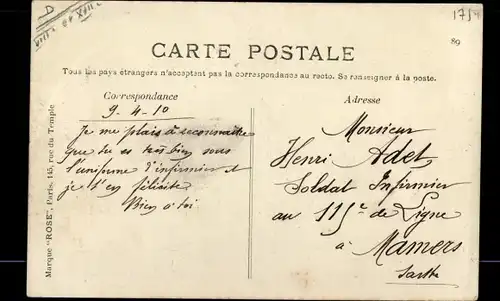 D
1754
89
CARTE POSTALE
Tous les pays étrangers n'acceptent pas la correspondance au recto. Se renseigner à la poste.
Correspondance
9-4-10
Je me plais à reconnaitre
que tu es très bien sous
l'uniforme d'infirmier et
je t'en félicite
Bien à toi
Adresse
Monsieur
Henri Adet
Soldat Infirmier
au 115e de Ligne
à Mamers
Sarthe
Marque "ROSE", Paris, 145, rue du Temple